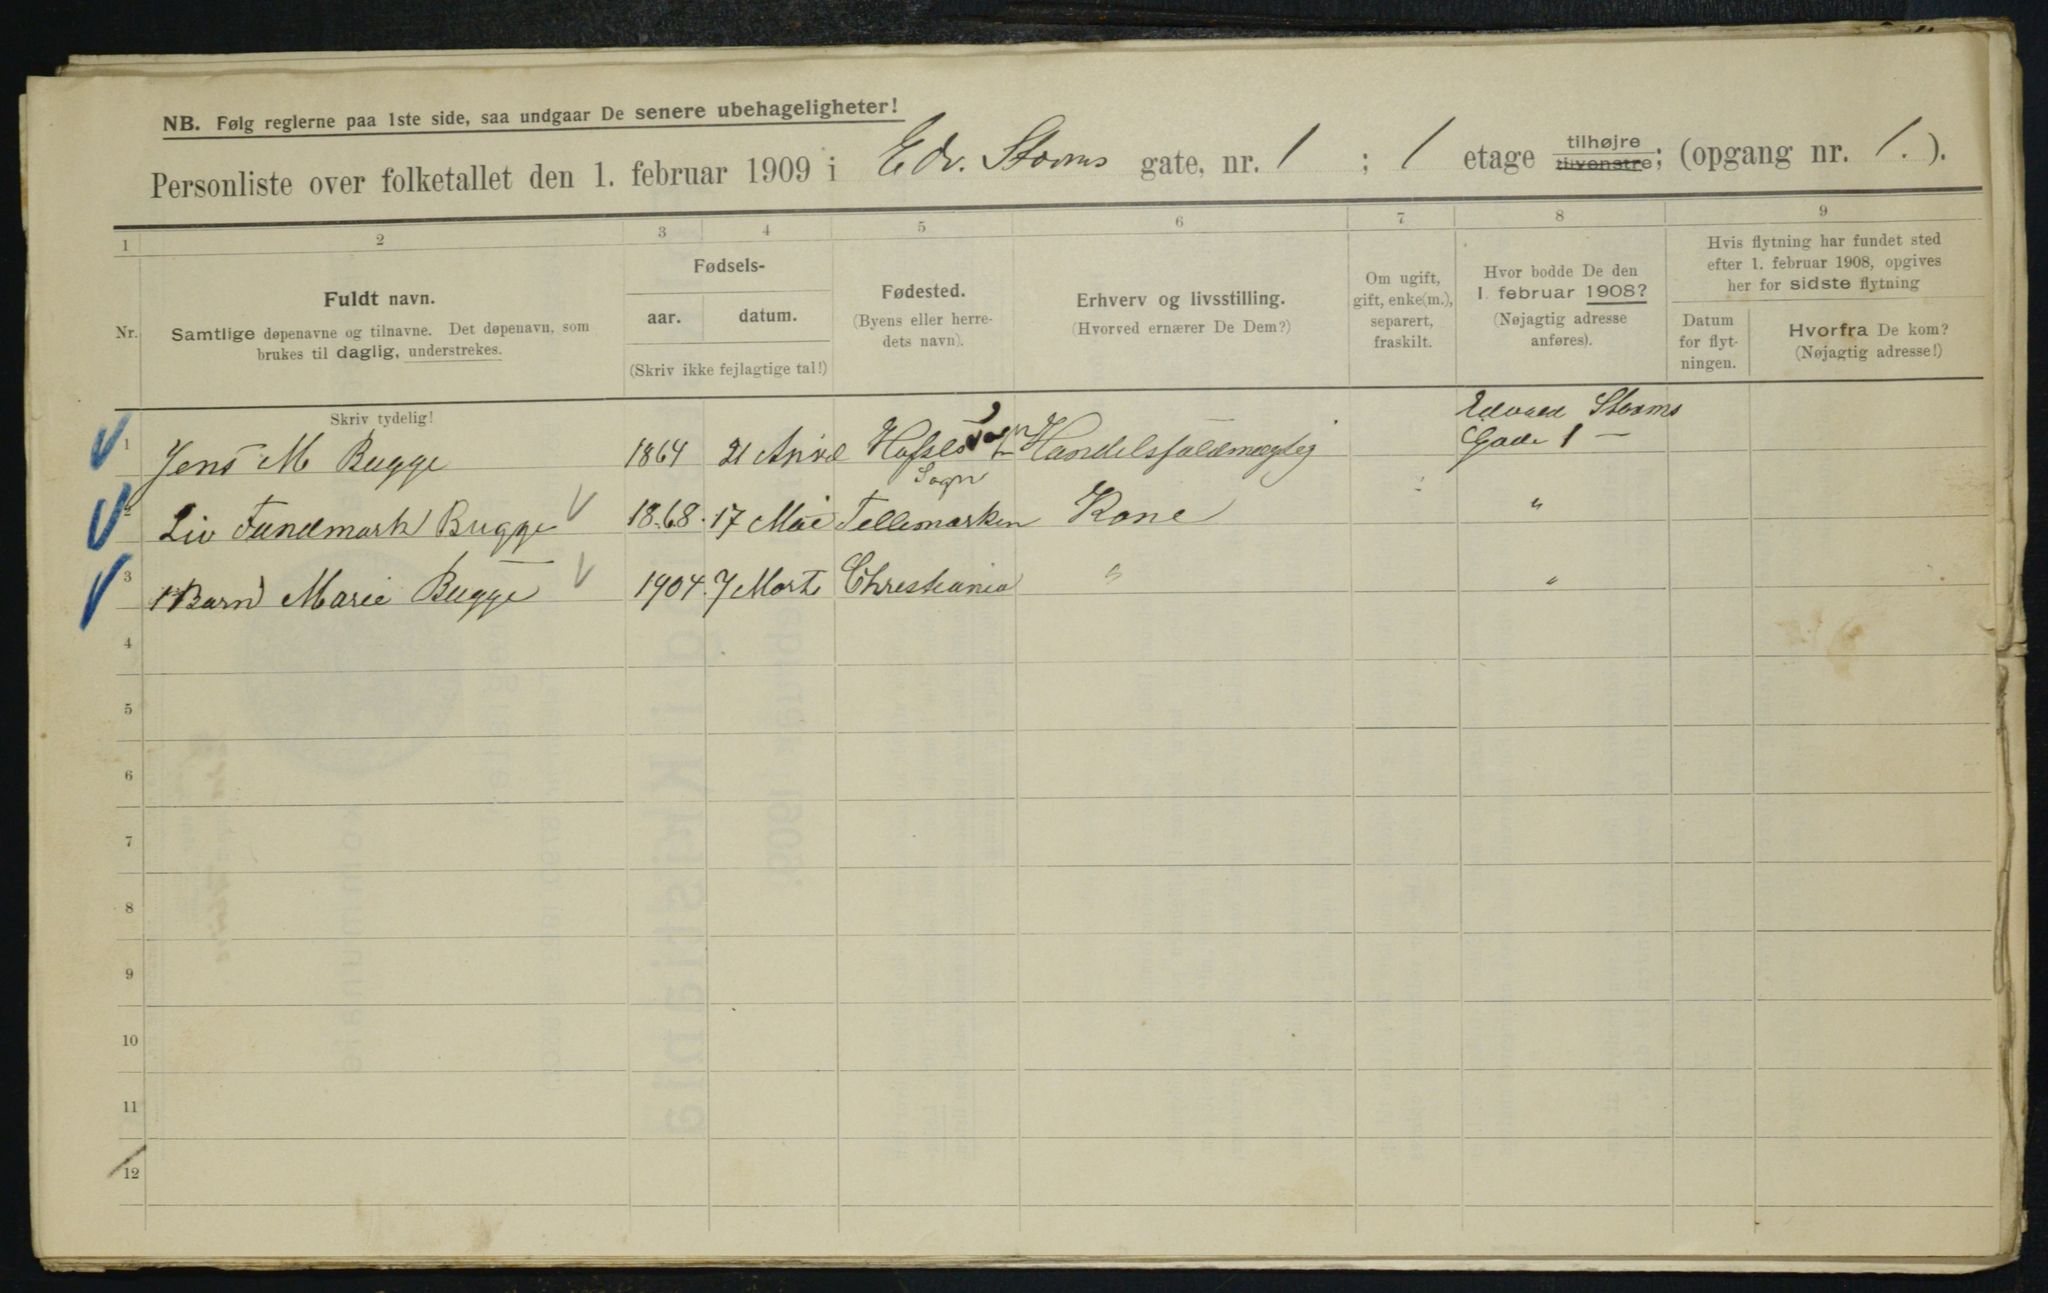 NB. Følg reglerne paa 1ste side, saa undgaar De senere ubehageligheter!
Personliste over folketallet den 1. februar 1909 i Edv. Storms gate, nr. 1 ; 1 etage tilhøjre tilvenstre; (opgang nr. 1. ).
1 2 3 4 5 6 7 8 9
Nr.
Fuldt navn.
Samtlige døpenavne og tilnavne. Det døpenavn, som
brukes til daglig, understrekes.
Fødsels-
aar. datum.
(Skriv ikke fejlagtige tal!)
Fødested.
(Byens eller herre-
dets navn).
Erhverv og livsstilling.
(Hvorved ernærer De Dem?)
Om ugift,
gift, enke(m.),
separert,
fraskilt.
Hvor bodde De den
1. februar 1908?
(Nøjagtig adresse
anføres).
Hvis flytning har fundet sted
efter 1. februar 1908, opgives
her for sidste flytning
Datum
for flyt-
ningen.
Hvorfra De kom?
(Nøjagtig adresse!)
Skriv tydelig!
Edvard Storms
1 Jens M Bugge 1864 21 April Handelsfuldmægtig Gade 1 —
Sogn
2 Liv Fandmark Bugge 1868. 17 Mai Tellemarken Kone "
3 1 Barn Marie Bugge 1904. 7 Marts Christiania " "
4
5
6
7
8
9
10
11
12